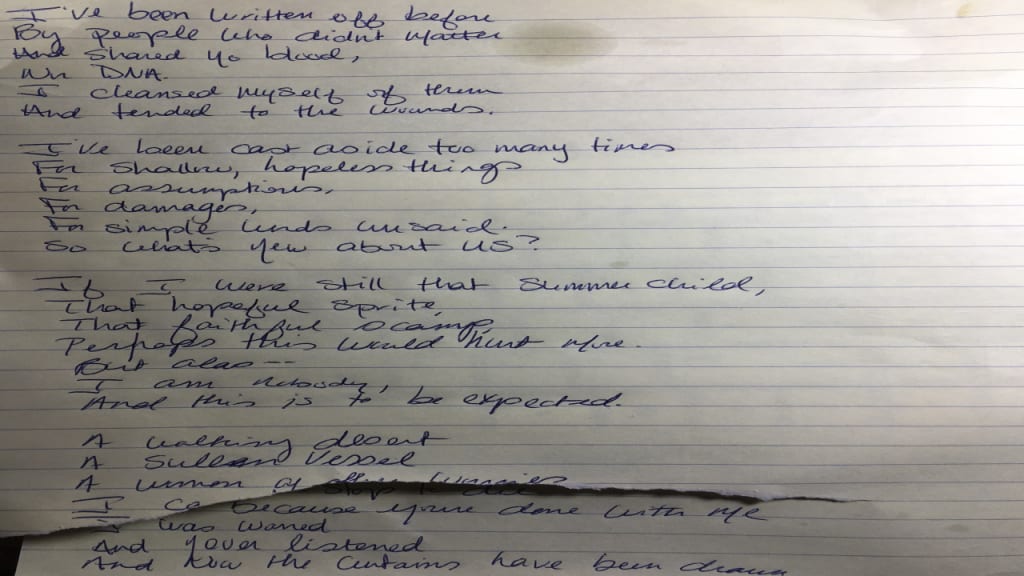 I've been written off before
By people who didn't matter
And shared no blood,
No DNA.
I cleansed myself of them
And tended to the wounds.
I've been cast aside too many times
For shallow, hopeless things
For assumptions,
For damages,
For simple words unsaid.
So what's new about us?
If I were still that summer child,
That hopeful sprite,
That faithful scamp,
Perhaps this would hurt more.
But alas --
I am nobody,
And this is to be expected.
A walking desert
A sullen vessel
A woman of
I because you're done with me
I was warned
And never listened
And now the curtains have been drawn